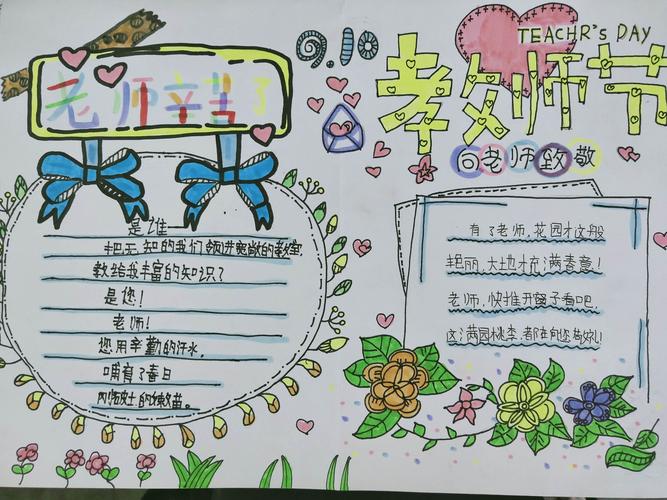 老师辛苦了
9.10
TEACHR's DAY
教师节
向老师致敬
是谁
把无知的我们领进宽敞的教室,
教给我丰富的知识?
是您!
老师!
您用辛勤的汗水,
哺育了春日
刚破土的嫩苗。
有了老师,花园才这般
艳丽,大地才充满春意!
老师,快推开窗子看吧,
这满园桃李,都在向您敬礼!